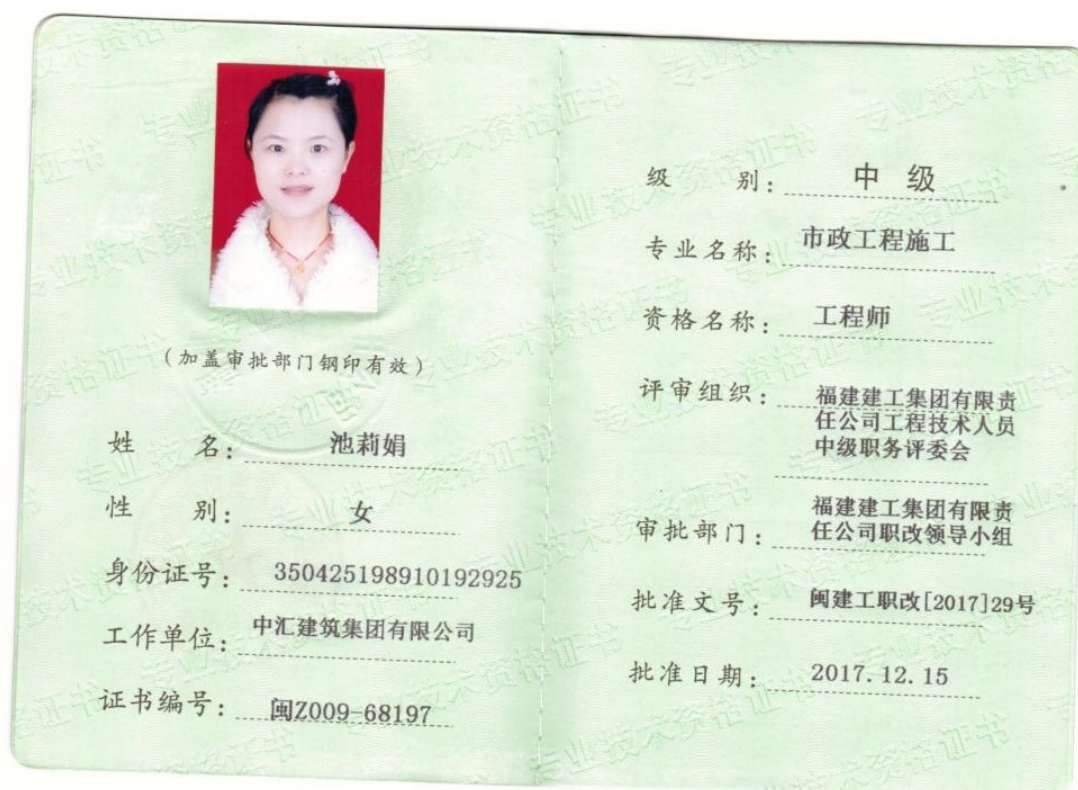 (加盖审批部门钢印有效)
姓 名: 池莉娟
性 别: 女
身份证号: 350425198910192925
工作单位: 中汇建筑集团有限公司
证书编号: 闽Z009-68197
级 别: 中 级
专业名称: 市政工程施工
资格名称: 工程师
评审组织: 福建建工集团有限责
任公司工程技术人员
中级职务评委会
审批部门: 福建建工集团有限责
任公司职改领导小组
批准文号: 闽建工职改[2017]29号
批准日期: 2017.12.15